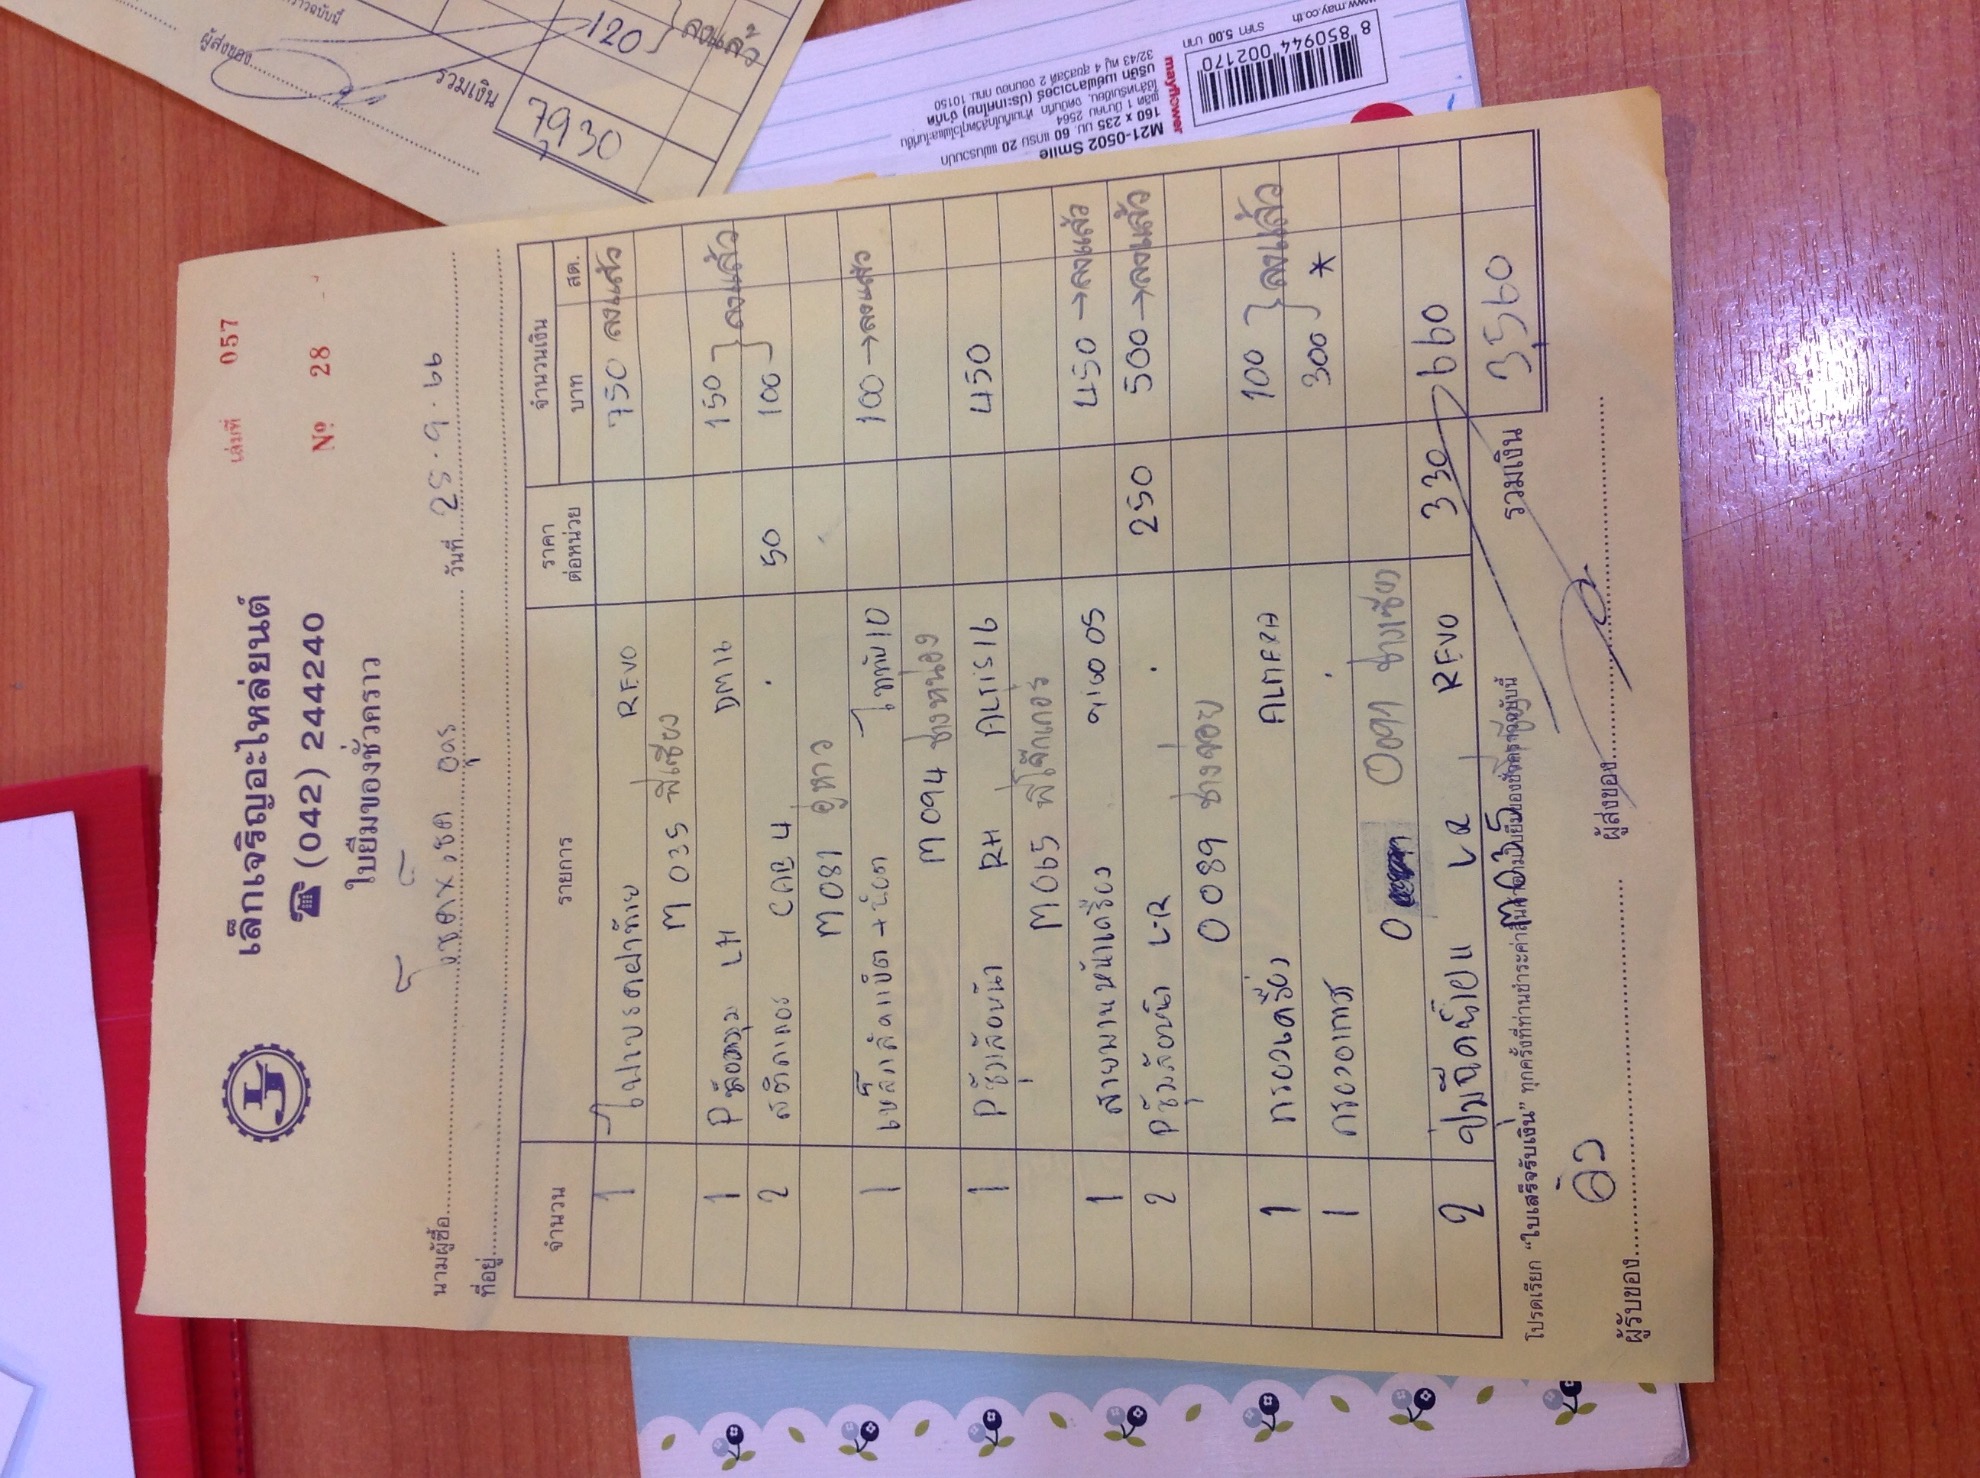 เล่มที่ 057
เล็กเจริญอะไหล่ยนต์
☎ (042) 244240
№ 28
ใบยืมของชั่วคราว
นามผู้ซื้อ โชควิเชต อุดร วันที่ 25.9.66
ที่อยู่
จำนวน รายการ ราคาต่อหน่วย จำนวนเงิน
บาท สต.
1 ใบเบรคฝาท้าย REVO 750 ลงแล้ว
M 035 พี่เซียง
1 LH DM12 150 } ลงแล้ว
2 สติกเกอร์ CAB 4 50 100
M 081 อู่หาว
1 เหล็กลัดแบ็ต + น๊อต ไททัน 10 100 → ลงแล้ว
M 094 ช่างหน่อง
1 Pชุมล้อหน้า RH ALTIS 16 450
M 065 พี่โจ๊กเกอร์
1 สายพานหน้าเครื่อง วีโก้ 05 450 → ลงแล้ว
2 Pชุมล้อหน้า L-R 250 500 → ลงแล้ว
0089 ช่างจ่อย
1 กรองเครื่อง ALMERA 100 } ลงแล้ว
1 กรองเทา 300 *
0 ช่างเซียง
2 LR REVO 330 660
M035
โปรดเรียก "ใบเสร็จรับเงิน" ทุกครั้งที่ท่านชำระค่าสินค้าตามใบยืมของชั่วคราวฉบับนี้
รวมเงิน 3,560
ผู้รับของ ผู้ส่งของ
120 } ลงแล้ว
ผู้ส่งของ
รวมเงิน 7,930
M21-0502 Smile
160 x 235 มม. 60 แกรม 20 แผ่น
mayflower
บริษัท เมย์ฟลาวเวอร์ (ประเทศไทย) จำกัด
ราคา 5.00 บาท
www.may.co.th
8 850944 002170